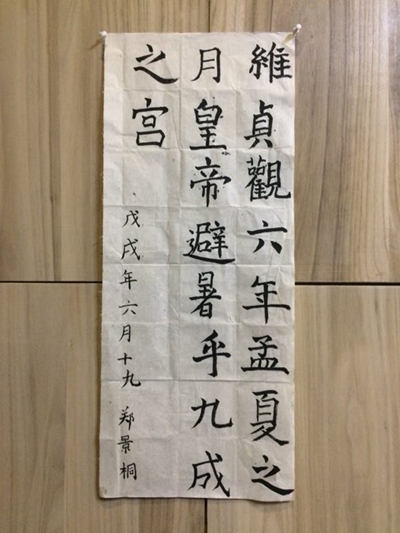 維貞觀六年孟夏之
月皇帝避暑乎九成
之宫
戊戌年六月十九 郑景桐